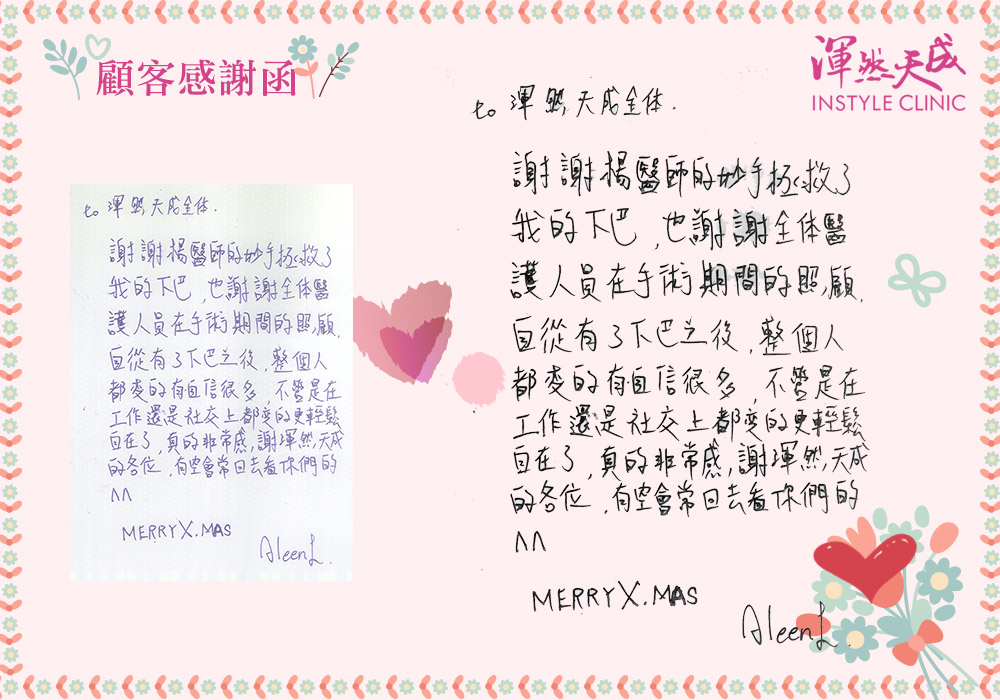 顧客感謝函
渾然天成
INSTYLE CLINIC
to 渾然天成全体.
謝謝楊醫師的妙手拯救了
我的下巴,也謝謝全体醫
護人員在手術期間的照顧.
自從有了下巴之後,整個人
都变的有自信很多,不管是在
工作還是社交上都变的更輕鬆
自在了,真的非常感謝渾然天成
的各位,有空會常回去看你們的
^^
MERRY X.MAS
Aleen L.
to 渾然天成全体.
謝謝楊醫師的妙手拯救了
我的下巴,也謝謝全体醫
護人員在手術期間的照顧.
自從有了下巴之後,整個人
都变的有自信很多,不管是在
工作還是社交上都变的更輕鬆
自在了,真的非常感謝渾然天成
的各位,有空會常回去看你們的
^^
MERRY X.MAS
Aleen L.